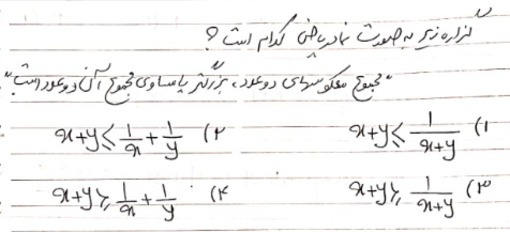 گزاره زیر به صورت نماد ریاضی کدام است؟
"مجموع معکوسهای دو عدد، بزرگتر یا مساوی مجموع آن دو عدد است"
۱) x+y ≤ 1/(x+y) ۲) x+y ≤ 1/x + 1/y
۳) x+y ≥ 1/(x+y) ۴) x+y ≥ 1/x + 1/y